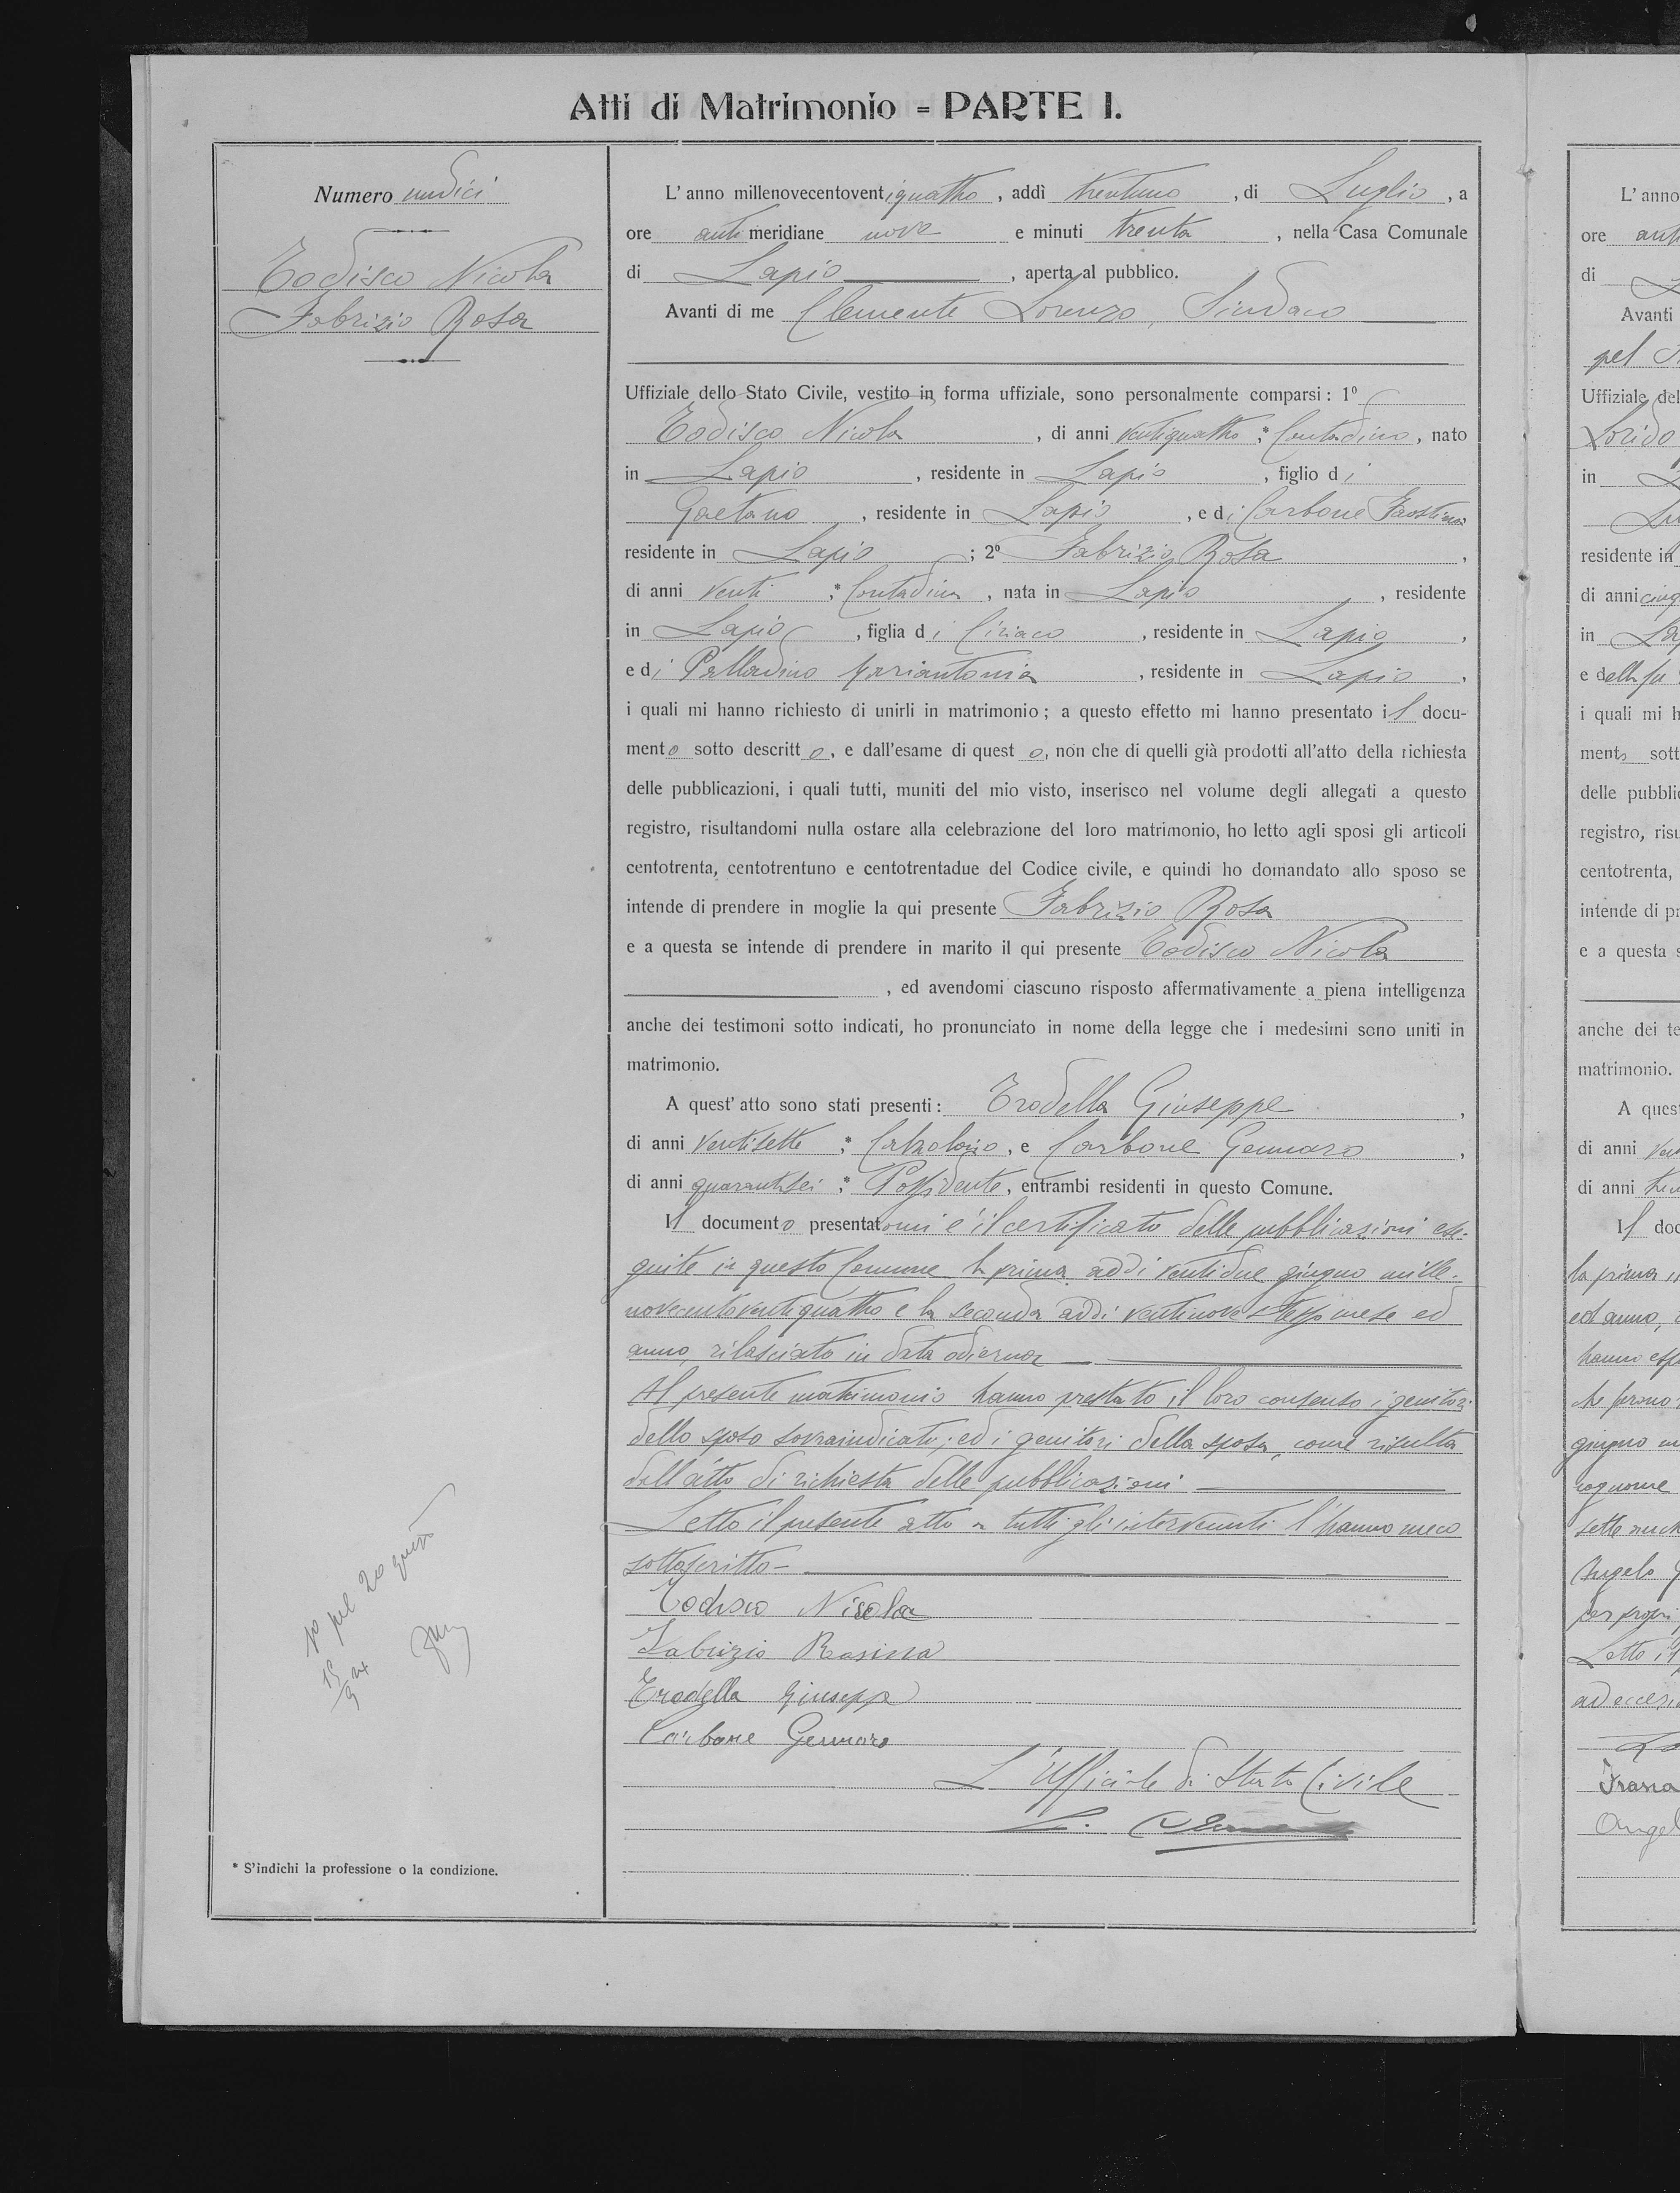 Atti di Matrimonio = PARTE I.
Numero undici
Todisco Nicola
Fabrizio Rosa
L' anno millenovecentoventiquattro, addì trentuno, di Luglio, a
ore antimeridiane nove e minuti trenta, nella Casa Comunale
di Lapio, aperta al pubblico.
Avanti di me Clemente Lorenzo, Sindaco
Uffiziale dello Stato Civile, vestito in forma uffiziale, sono personalmente comparsi: 1º
Todisco Nicola, di anni ventiquattro,* Contadino, nato
in Lapio, residente in Lapio, figlio di
Gaetano, residente in Lapio, e di Carbone Faostina
residente in Lapio; 2º Fabrizio Rosa,
di anni venti,* Contadina, nata in Lapio, residente
in Lapio, figlia di Ciriaco, residente in Lapio,
e di Palladino Mariantonia, residente in Lapio,
i quali mi hanno richiesto di unirli in matrimonio; a questo effetto mi hanno presentato il docu-
mento sotto descritto, e dall'esame di questo, non che di quelli già prodotti all'atto della richiesta
delle pubblicazioni, i quali tutti, muniti del mio visto, inserisco nel volume degli allegati a questo
registro, risultandomi nulla ostare alla celebrazione del loro matrimonio, ho letto agli sposi gli articoli
centotrenta, centotrentuno e centotrentadue del Codice civile, e quindi ho domandato allo sposo se
intende di prendere in moglie la qui presente Fabrizio Rosa
e a questa se intende di prendere in marito il qui presente Todisco Nicola
, ed avendomi ciascuno risposto affermativamente a piena intelligenza
anche dei testimoni sotto indicati, ho pronunciato in nome della legge che i medesimi sono uniti in
matrimonio.
A quest' atto sono stati presenti: Trodella Giuseppe,
di anni ventisette,* Calzolaio, e Carbone Gennaro,
di anni quarantasei,* Possidente, entrambi residenti in questo Comune.
Il documento presentatomi è il certificato delle pubblicazioni ese-
guite in questo Comune la prima addì ventidue giugno mille-
novecentoventiquattro e la seconda addì ventinove stesso mese ed
anno, rilasciato in data odierna
Al presente matrimonio hanno prestato il loro consenso i genitori
dello sposo sovraindicato, ed i genitori della sposa, come risulta
dall'atto di richiesta delle pubblicazioni
Letto il presente atto a tutti gli intervenuti l'hanno meco
sottoscritto-
Todisco Nicola
Fabrizio Rosina
Trodella Giuseppe
Carbone Gennaro
L'Ufficiale di Stato Civile
* S'indichi la professione o la condizione.
L' anno
ore
di
Avanti
Uffiziale del
in
residente in
di anni
in
e
i quali mi
delle
centotrenta,
e a questa
anche dei
matrimonio.
di anni
di anni